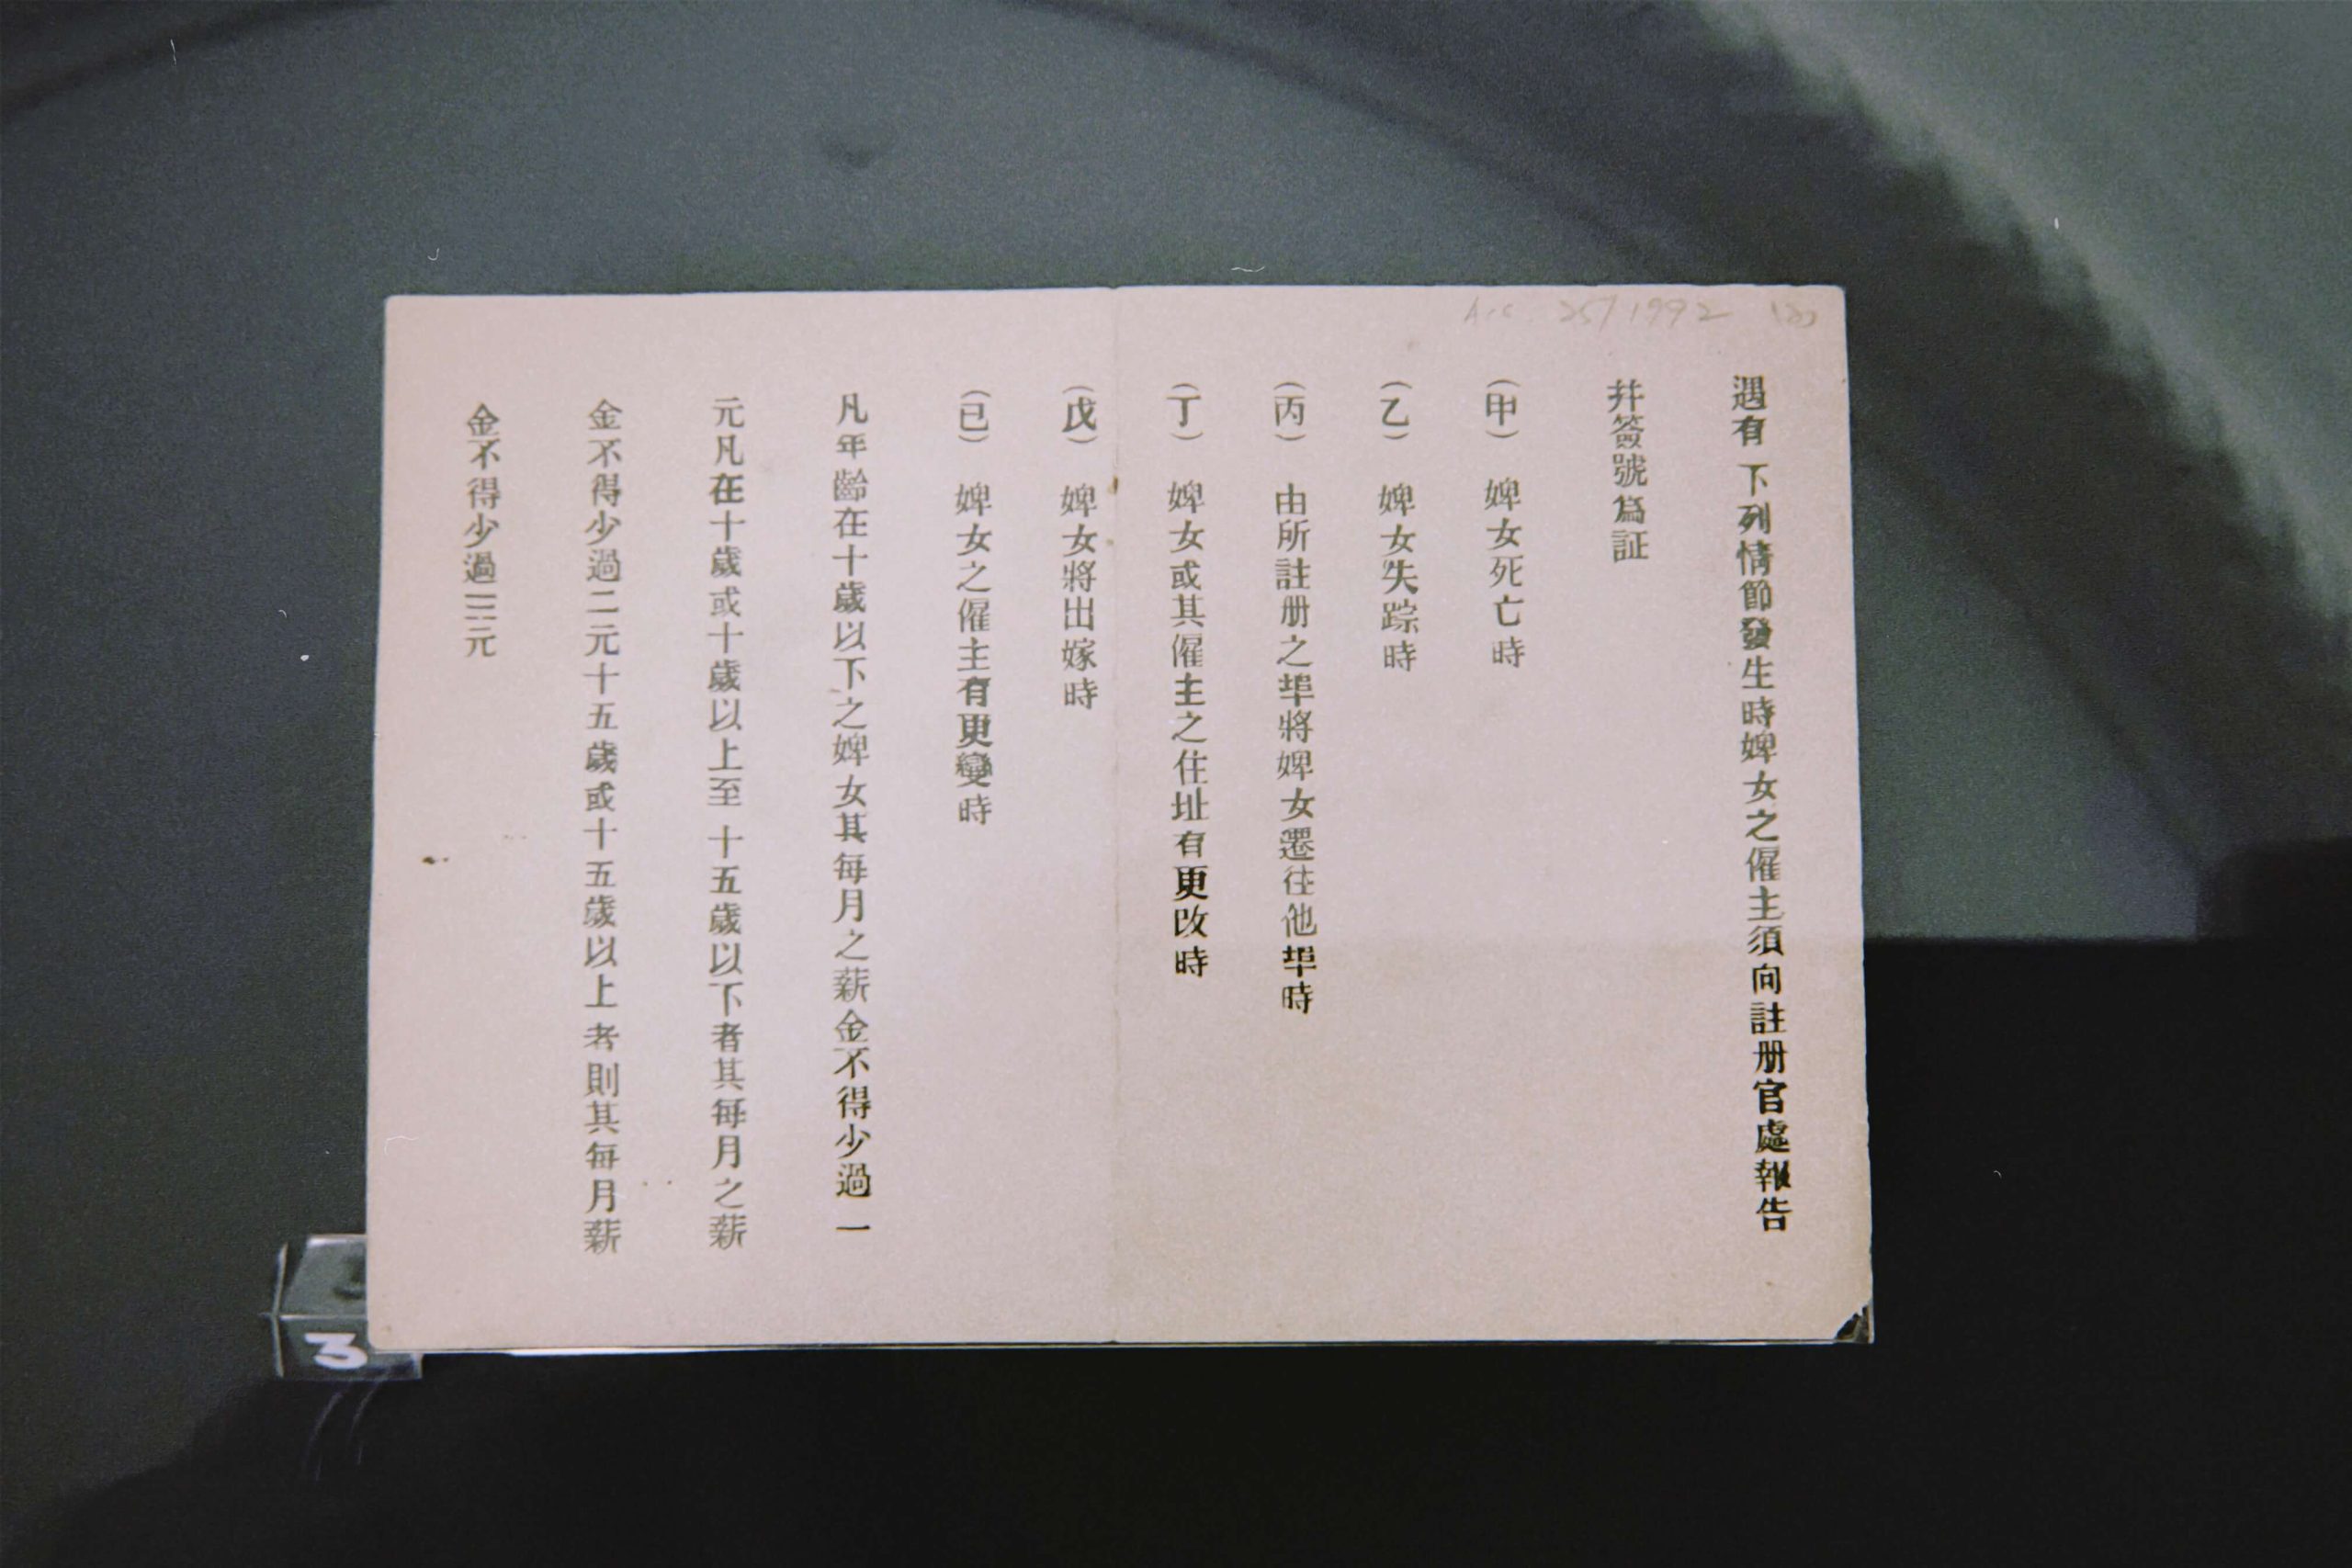 遇有下列情節發生時婢女之僱主須向註册官處報告
幷簽號爲証
(甲) 婢女死亡時
(乙) 婢女失踪時
(丙) 由所註册之埠將婢女遷往他埠時
(丁) 婢女或其僱主之住址有更改時
(戊) 婢女將出嫁時
(已) 婢女之僱主有更變時
凡年齡在十歲以下之婢女其每月之薪金不得少過一
元凡在十歲或十歲以上至十五歲以下者其每月之薪
金不得少過二元十五歲或十五歲以上者則其每月薪
金不得少過三元
25/1992
3